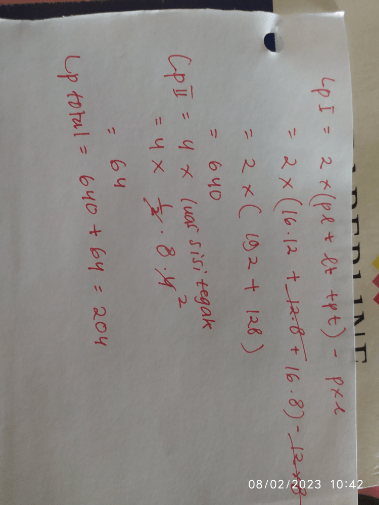 Lp I = 2 × (pl + lt + pt) - p×l
= 2 × (16.12 + 12.8 + 16.8) - 12×8
= 2 × ( 192 + 128 )
= 640
Lp II = 4 × luas sisi tegak
= 4 × 1/2 . 8 . 4 2
= 64
Lp total = 640 + 64 = 204
08/02/2023 10:42